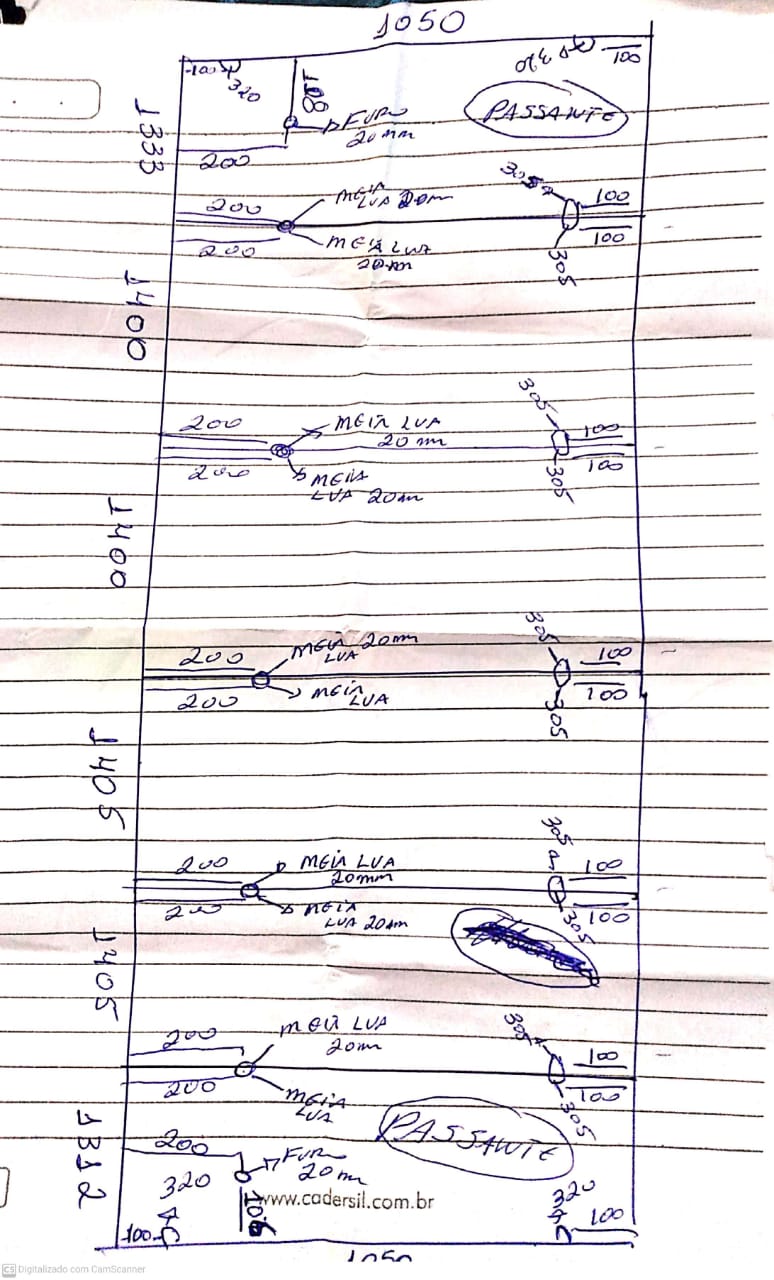 1050
100 320
320 100
108
FURO
20mm
PASSANTE
1333
200
305
200
MEIA
LUA 20m
100
200
MEIA LUA
20mm
100
305
1400
305
200
MEIA LUA
20 mm
100
200
MEIA
LUA 20m
100
305
1400
305
200
MEIA 20mm
LUA
100
200
MEIA
LUA
100
305
1405
305
200
MEIA LUA
20mm
100
200
MEIA
LUA 20mm
100
305
1405
305
200
MEIA LUA
20m
100
200
MEIA
LUA
100
305
PASSANTE
1312
200
FURO
20m
320
106
www.cadersil.com.br
320
100
100
1050
CS Digitalizado com CamScanner